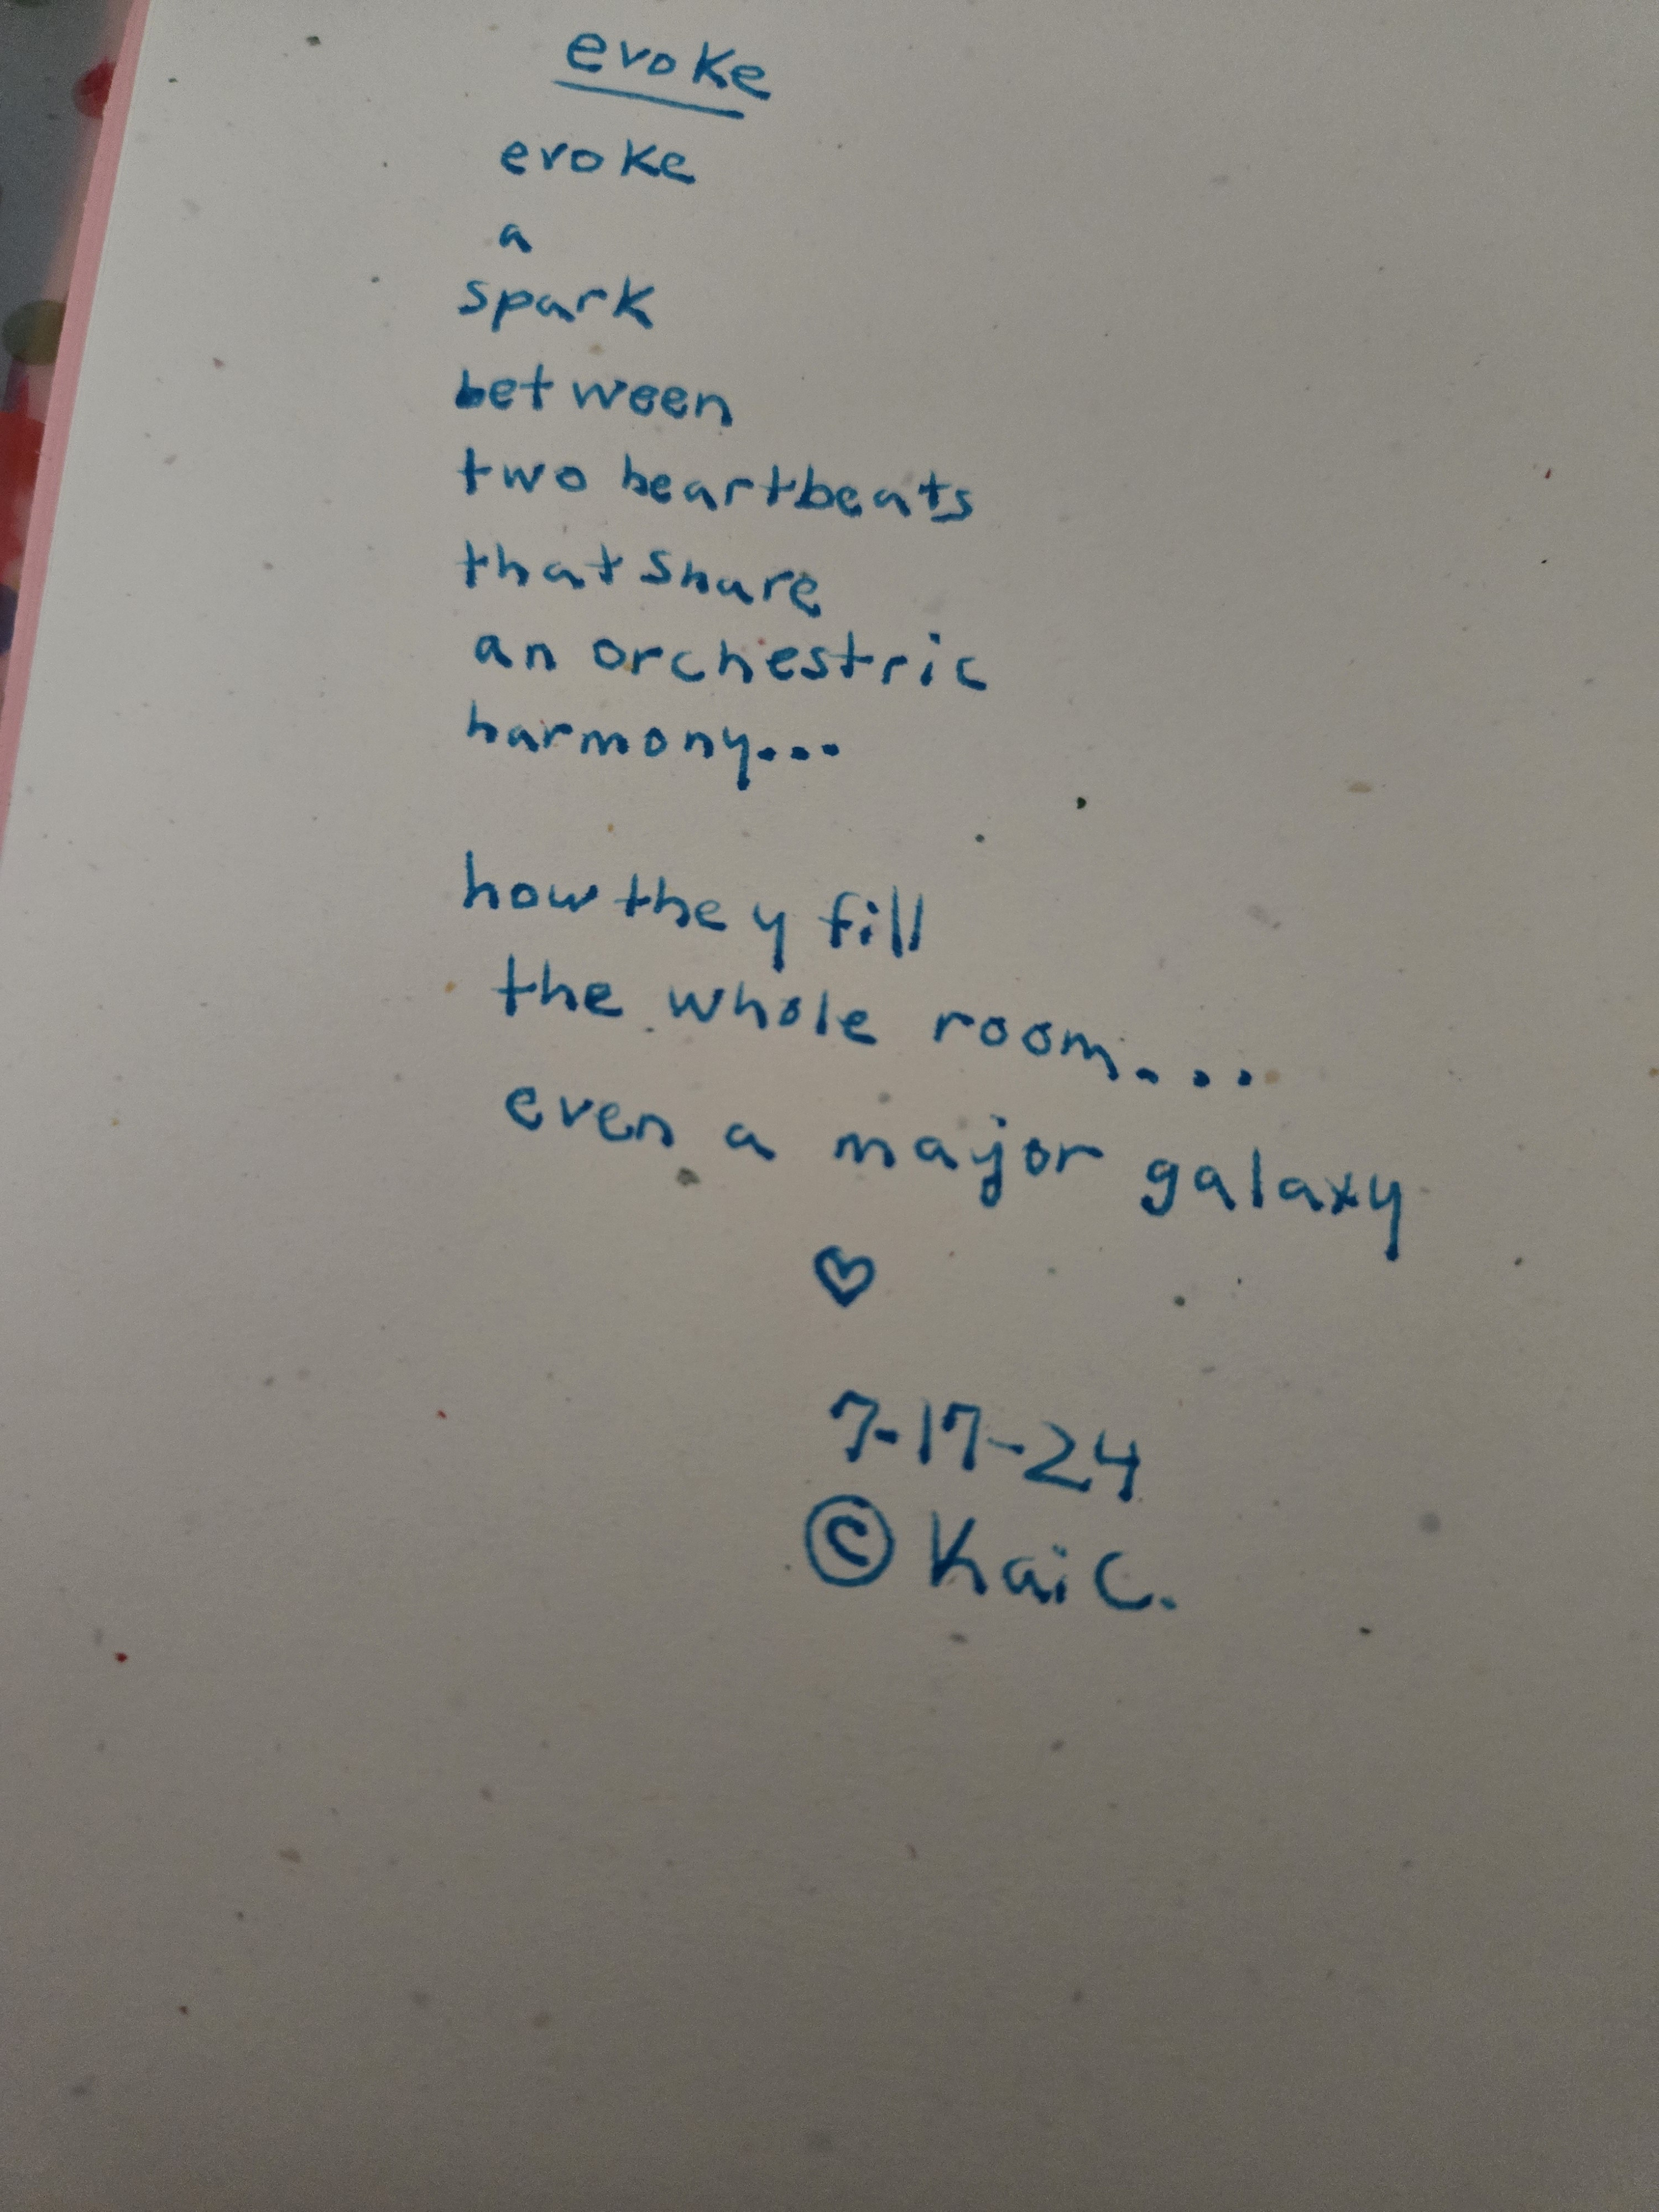 evoke
evoke
a
spark
between
two heartbeats
that share
an orchestric
harmony...
how they fill
the whole room....
even a major galaxy
♡
7-17-24
© Kai C.